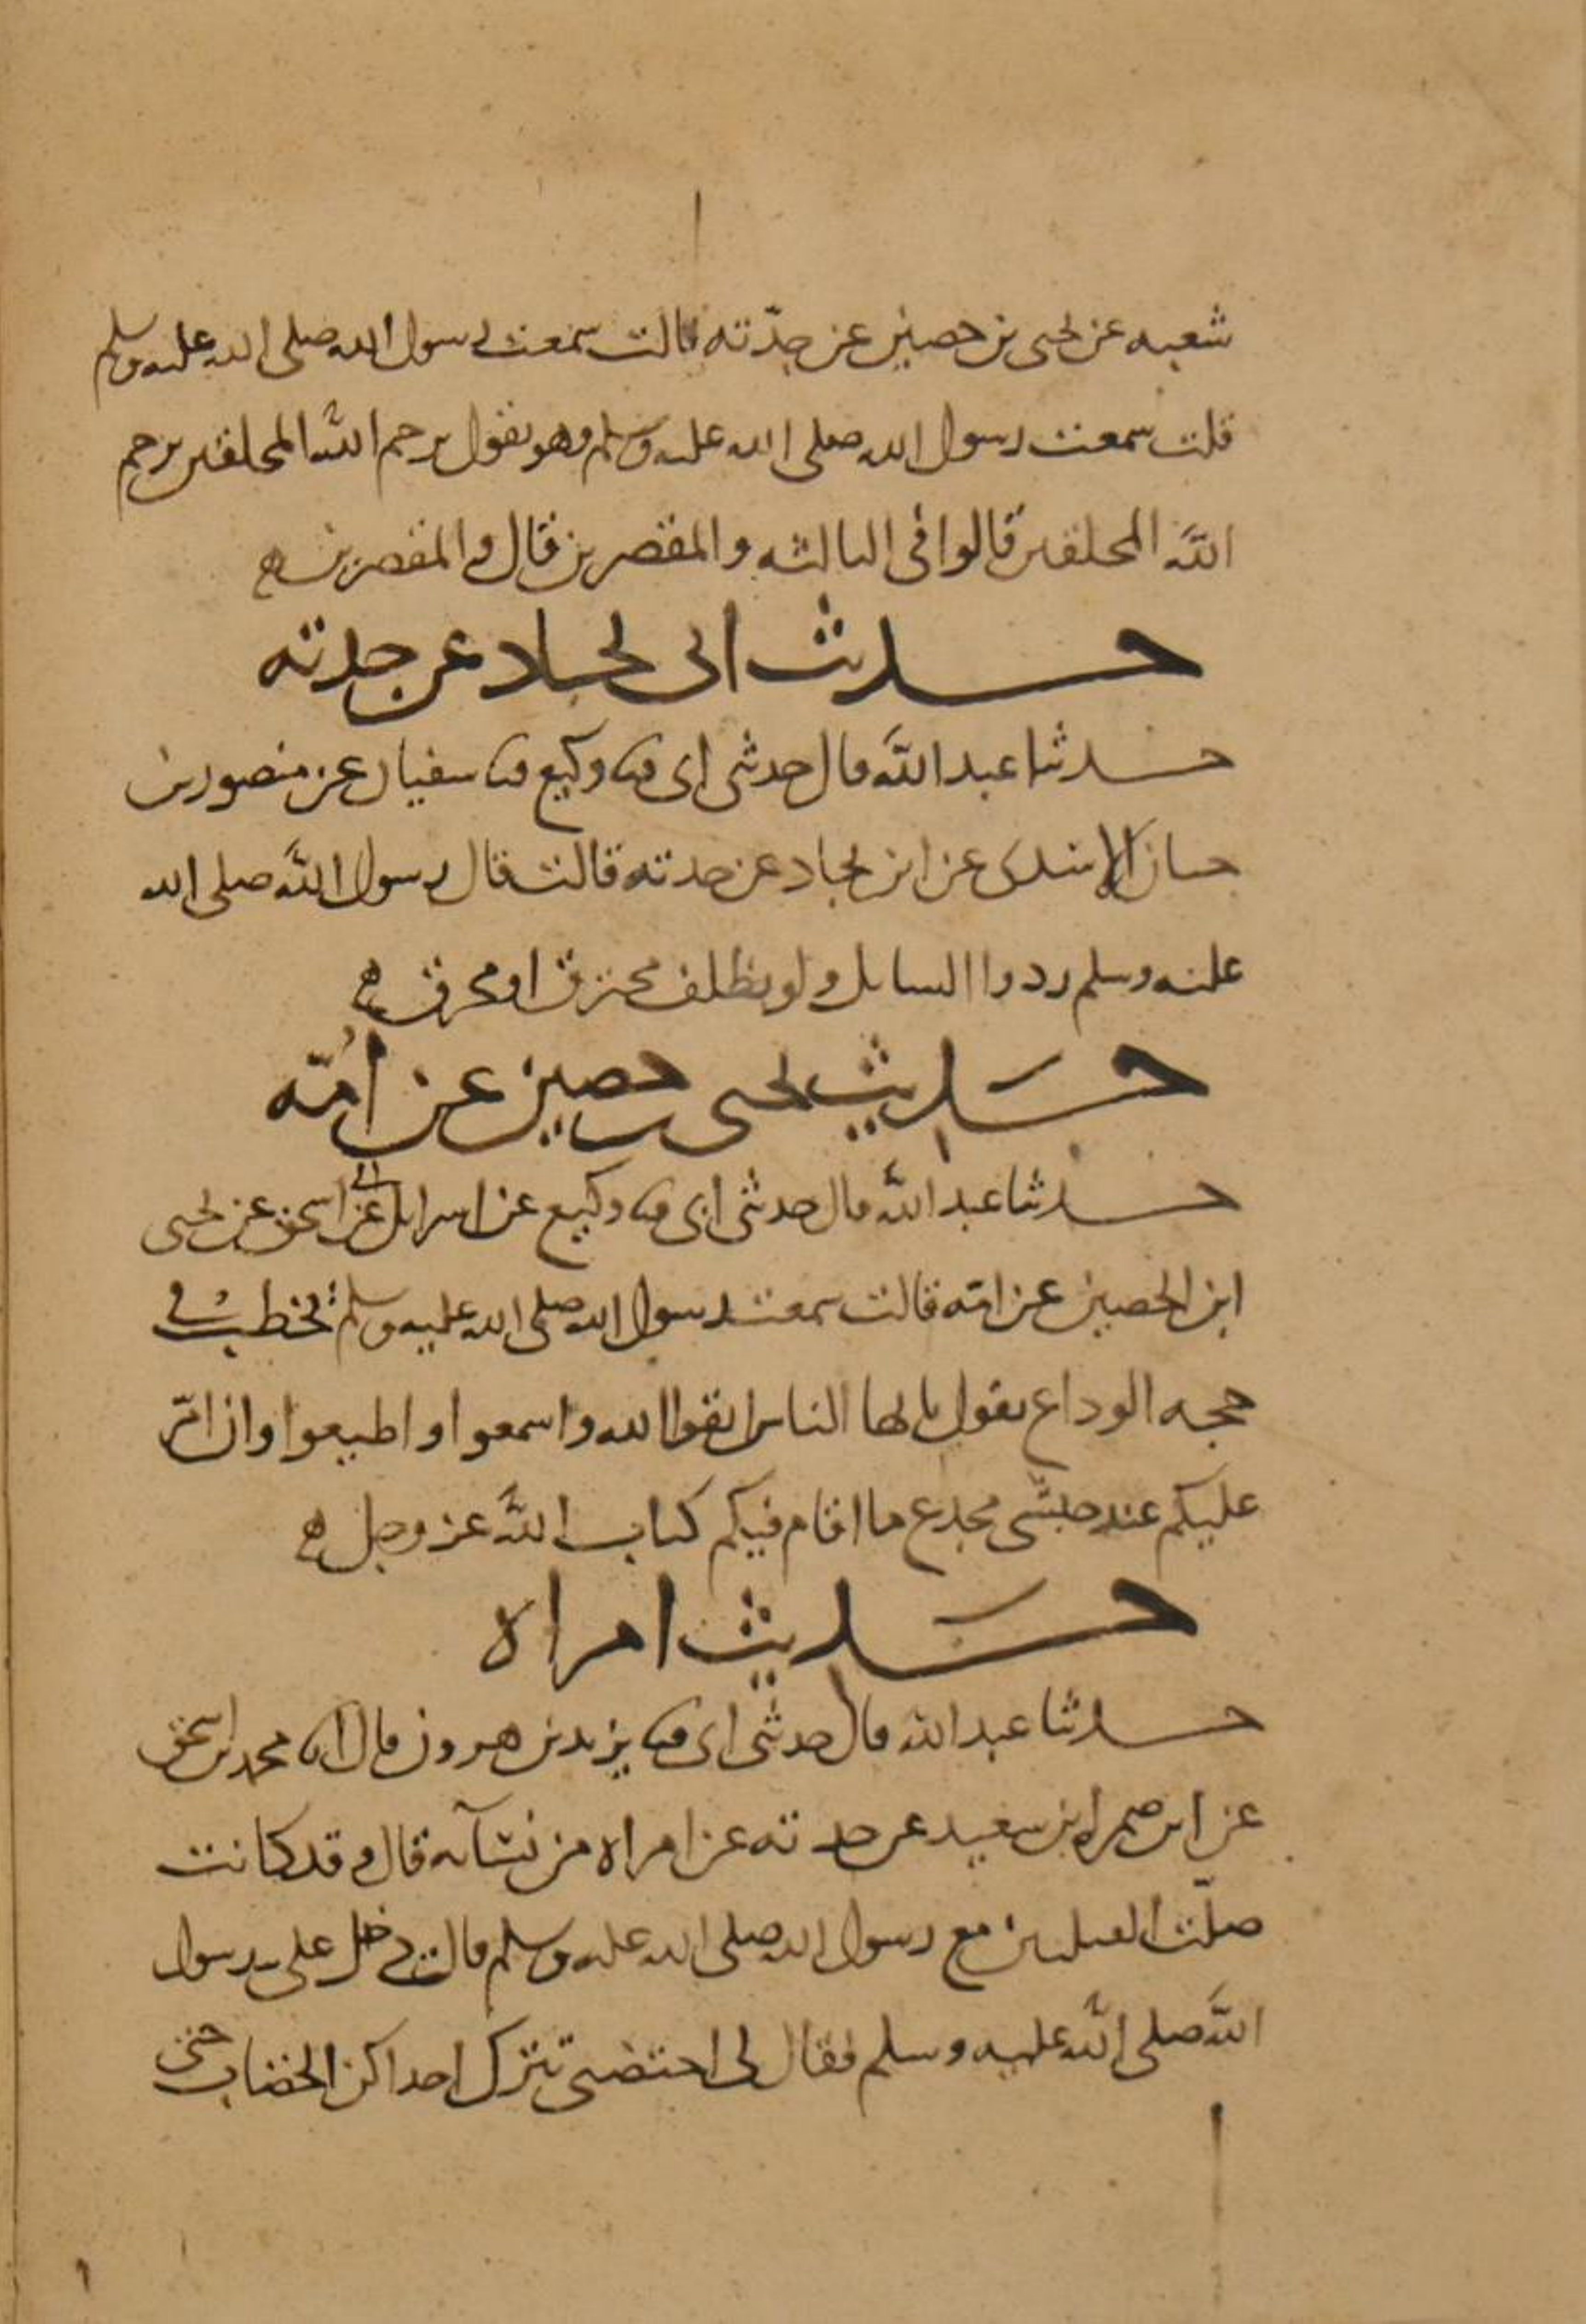 شعبه عن يحيى بن حصين عن جدّته قالت سمعت رسول الله صلى الله عليه وسلم
قلت سمعت رسول الله صلى الله عليه وسلم وهو يقول يرحم الله المحلقين يرحم
الله المحلقين قالوا فى الثالثه والمقصرين قال والمقصرين ه
حديث ابى بجاد عن جدته
حدثنا عبد الله قال حدثنى ابى ثنا وكيع ثنا سفيان عن منصور بن
حسان الاسدى عن ابن بجاد عن جدته قالت قال رسول الله صلى الله
عليه وسلم ردوا السايل ولو بظلف محترق او محرق ه
حديث يحيى بن حصين عن امّه
حدثنا عبد الله قال حدثنى ابى ثنا وكيع عن اسرايل عن ابى اسحق عن يحيى
ابن الحصين عن امّه قالت سمعت رسول الله صلى الله عليه وسلم يخطب فى
حجه الوداع يقول يا ايها الناس اتقوا الله واسمعوا واطيعوا وان امّر
عليكم عبد حبشى مجدع ما اقام فيكم كتاب الله عز وجل ه
حديث امراه
حدثنا عبد الله قال حدثنى ابى ثنا يزيد بن هرون قال انا محمد بن اسحق
عن ابن ضمره بن سعيد عن جدته عن امراه من نسآئه قال وقد كانت
صلّت القبلتين مع رسول الله صلى الله عليه وسلم قالت دخل على رسول
الله صلى الله عليه وسلم فقال لى اختضبى تترك احداكن الخضاب حتى